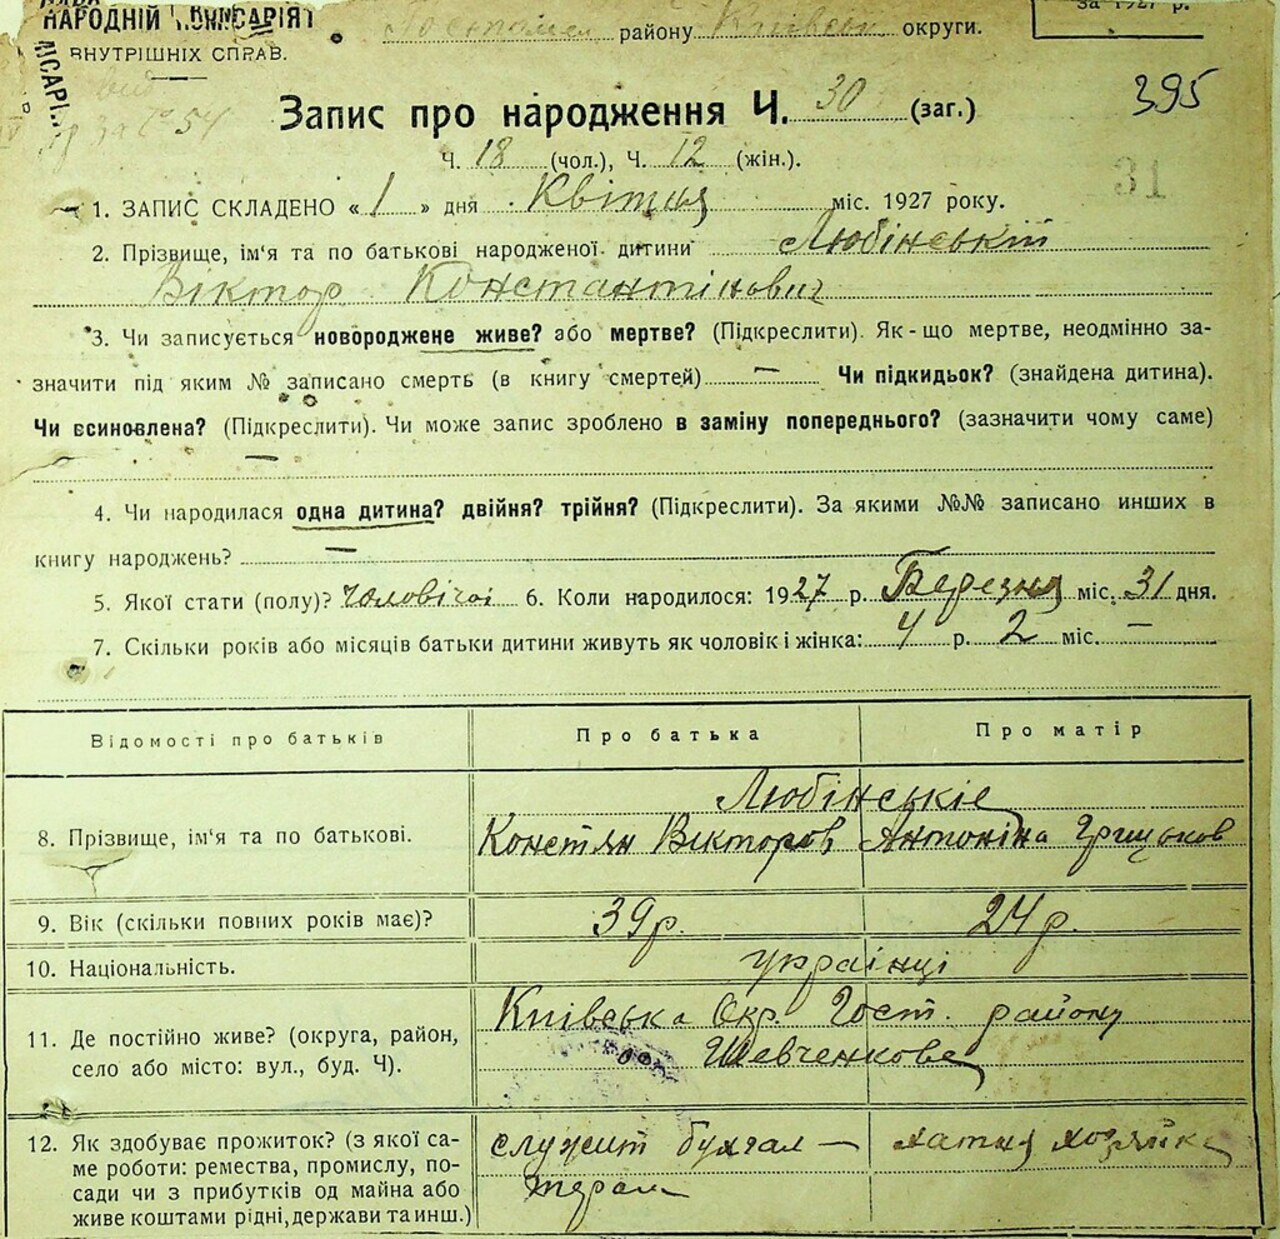 НАРОДНІЙ КОМІСАРІЯТ
ВНУТРІШНІХ СПРАВ.
району Київськ округи.
за 1927 р.
395
Запис про народження Ч. 30 (заг.)
Ч. 18 (чол.), Ч. 12 (жін.).
31
1. ЗАПИС СКЛАДЕНО « 1 » дня Квітня міс. 1927 року.
2. Прізвище, ім'я та по батькові народженої дитини Любінський
Віктор Константінович
3. Чи записується новороджене живе? або мертве? (Підкреслити). Як-що мертве, неодмінно за-
значити під яким № записано смерть (в книгу смертей) — Чи підкидьок? (знайдена дитина).
Чи всиновлена? (Підкреслити). Чи може запис зроблено в заміну попереднього? (зазначити чому саме)
—
4. Чи народилася одна дитина? двійня? трійня? (Підкреслити). За якими №№ записано инших в
книгу народжень? —
5. Якої стати (полу)? чоловічої 6. Коли народилося: 1927 р. Березня міс. 31 дня.
7. Скільки років або місяців батьки дитини живуть як чоловік і жінка: 4 р. 2 міс. —
Відомості про батьків Про батька Про матір
Любінськіє
8. Прізвище, ім'я та по батькові. Констян Вікторов Антоніна Грицьков
9. Вік (скільки повних років має)? 39 р. 24 р.
10. Національність. українці
11. Де постійно живе? (округа, район, Київська Окр. Гост. району
село або місто: вул., буд. Ч). Шевченкове
12. Як здобуває прожиток? (з якої са- служит бухгал— хатня хозяйка
ме роботи: ремества, промислу, по- тером
сади чи з прибутків од майна або
живе коштами рідні, держави та инш.)